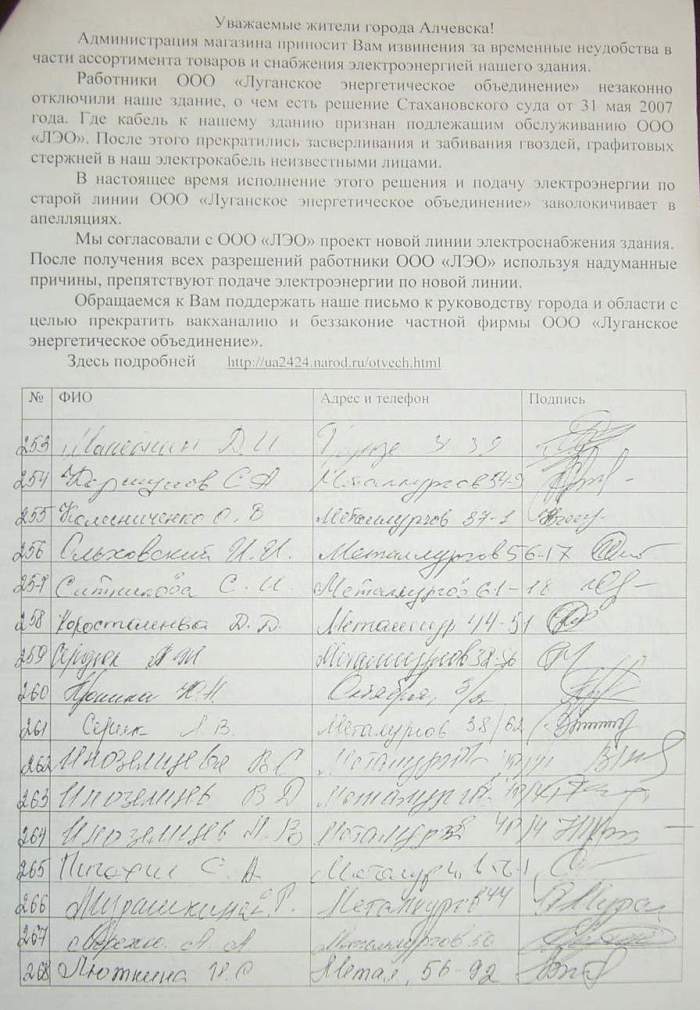 Уважаемые жители города Алчевска!
Администрация магазина приносит Вам извинения за временные неудобства в
части ассортимента товаров и снабжения электроэнергией нашего здания.
Работники ООО «Луганское энергетическое объединение» незаконно
отключили наше здание, о чем есть решение Стахановского суда от 31 мая 2007
года. Где кабель к нашему зданию признан подлежащим обслуживанию ООО
«ЛЭО». После этого прекратились засверливания и забивания гвоздей, графитовых
стержней в наш электрокабель неизвестными лицами.
В настоящее время исполнение этого решения и подачу электроэнергии по
старой линии ООО «Луганское энергетическое объединение» заволокичивает в
апелляциях.
Мы согласовали с ООО «ЛЭО» проект новой линии электроснабжения здания.
После получения всех разрешений работники ООО «ЛЭО» используя надуманные
причины, препятствуют подаче электроэнергии по новой линии.
Обращаемся к Вам поддержать наше письмо к руководству города и области с
целью прекратить вакханалию и беззаконие частной фирмы ООО «Луганское
энергетическое объединение».
Здесь подробней http://ua2424.narod.ru/otvech.html
№ ФИО Адрес и телефон Подпись
253 Д.И
254 С А Металлургов
255 Калениченко О. В Металлургов 37-1
256 Ольховский И.И. Металлургов 56-17
257 Ситникова С. И. Металургов 61-18
258 Д.Д. 44-51
259 Сердюк
260 Ю.Н. Октября,
261 Серик А В. Металургов 38/62
262 Иноземцева В С
263 Иноземцев В Д
264 Иноземцев А. В 40/4
265 С. А.
266 Мурашкина Г. Металлургов 44
267 А А Металлургов 56
268 Люткина И С Метал, 56-92